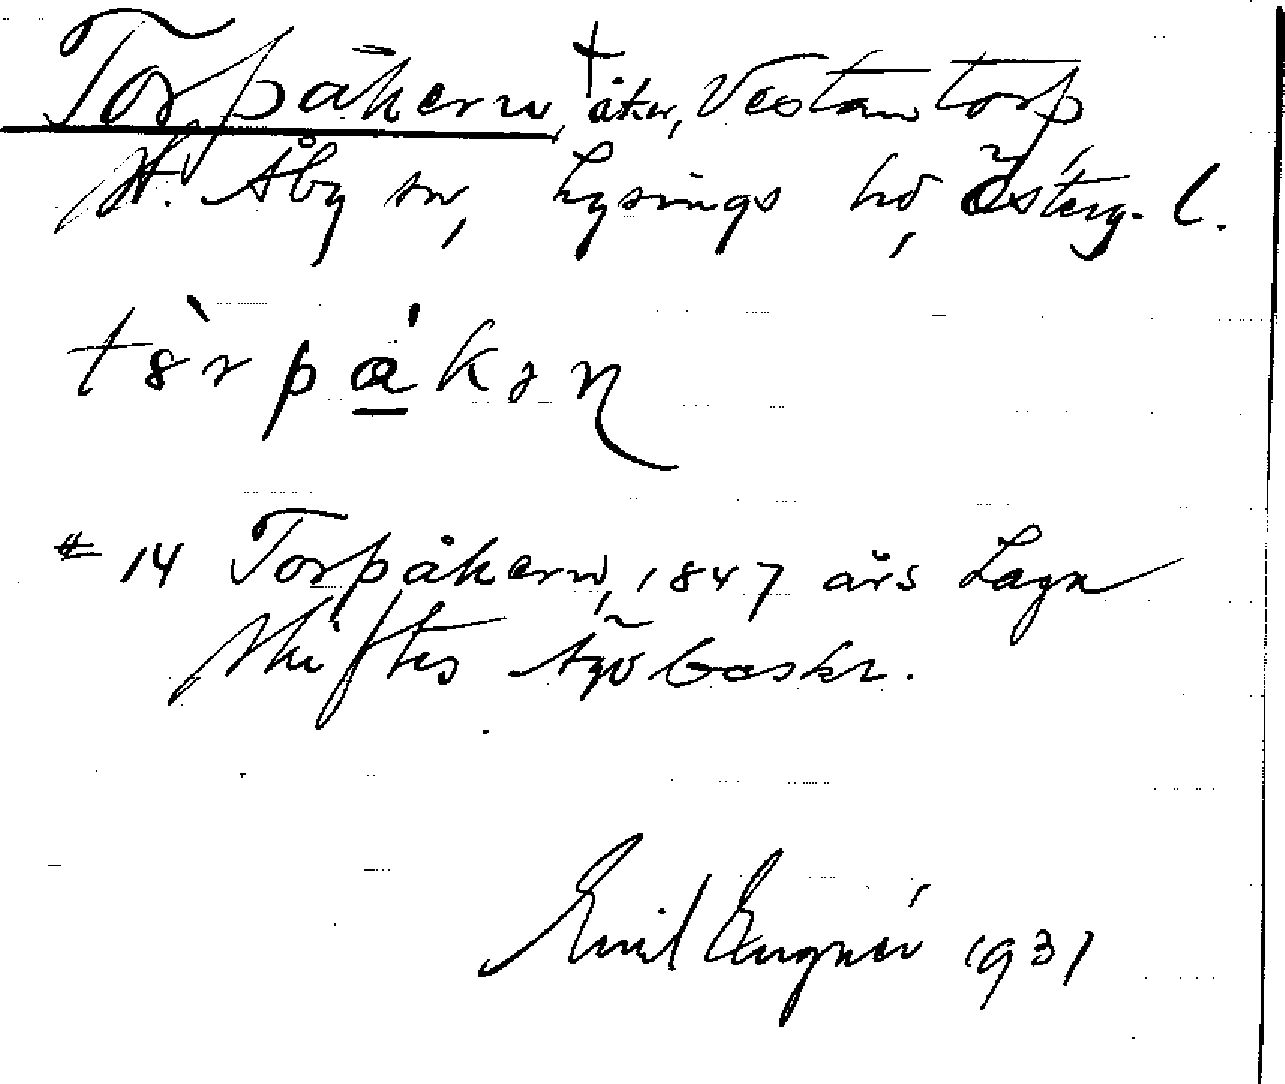 Torpåkern, † åker, Västantorp
H. Åby sn, Lysings hd, Österg. l.
tòrpåkən
# 14 Torpåkern, 1847 års Laga
skiftes ägobeskr.
Emil Engnér 1931